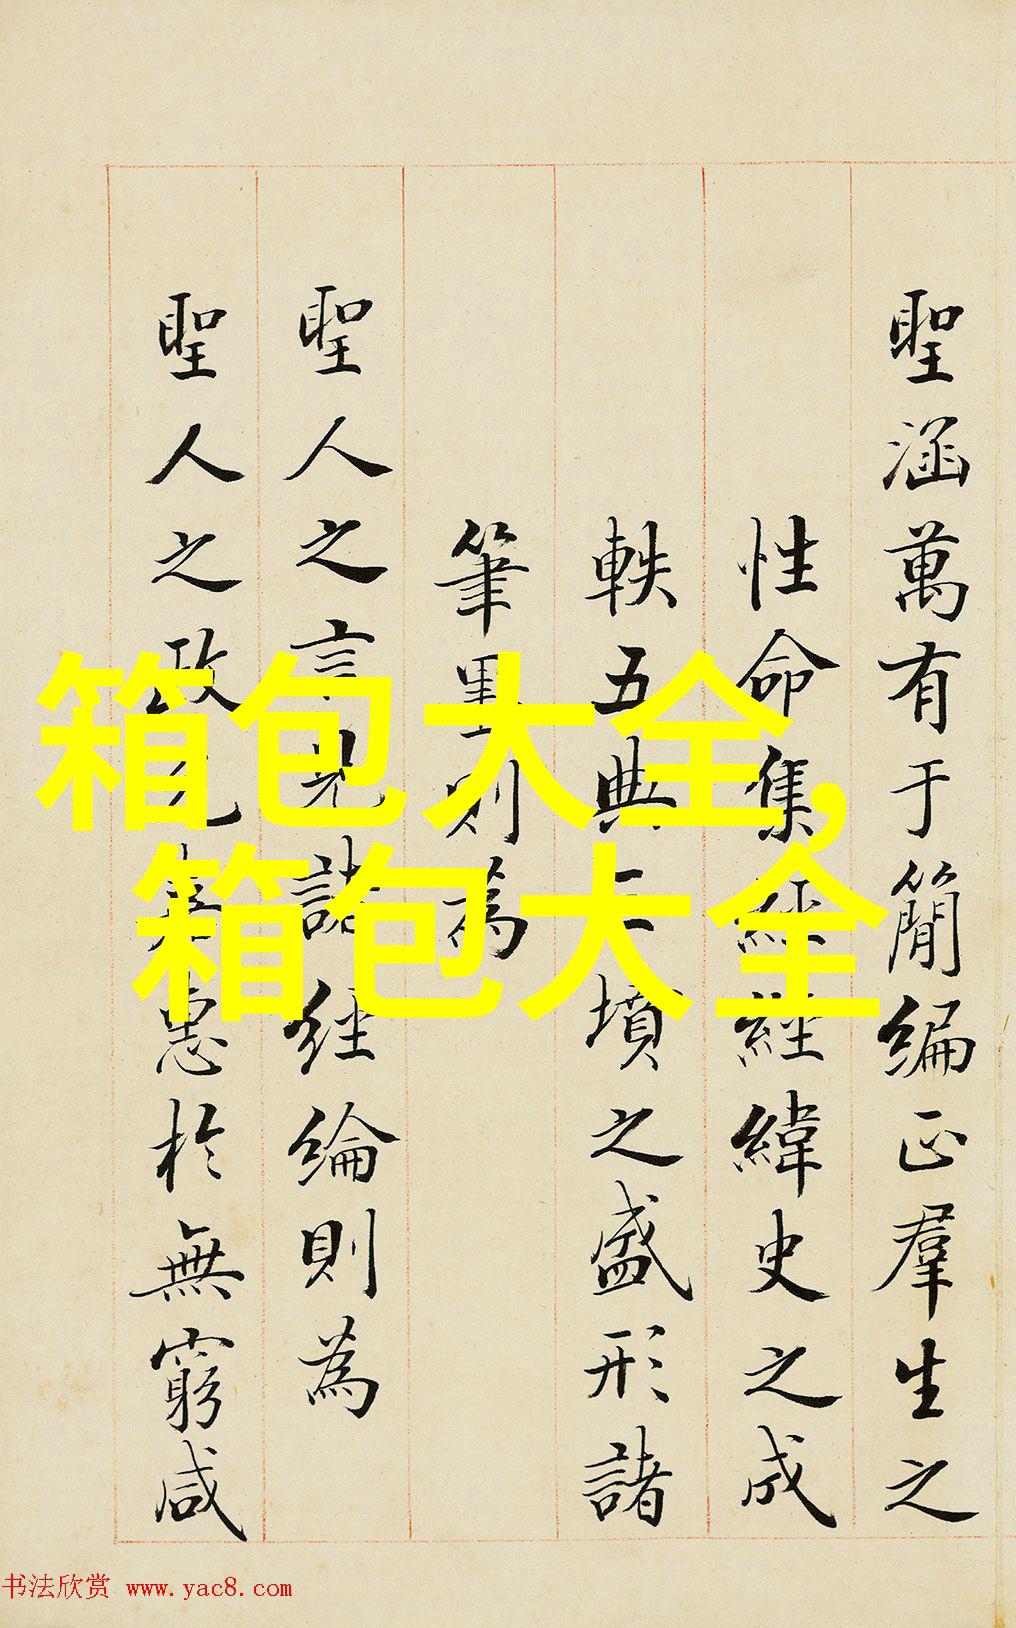 聖涵萬有于簡編正羣生之
性命集經緯史之成
軼五典三墳之盛形諸
筆墨則為
聖人之言見諸經綸則為
聖人之政惠於無窮咸
箱包大全,
箱包大全
书法欣赏 www.yac8.com